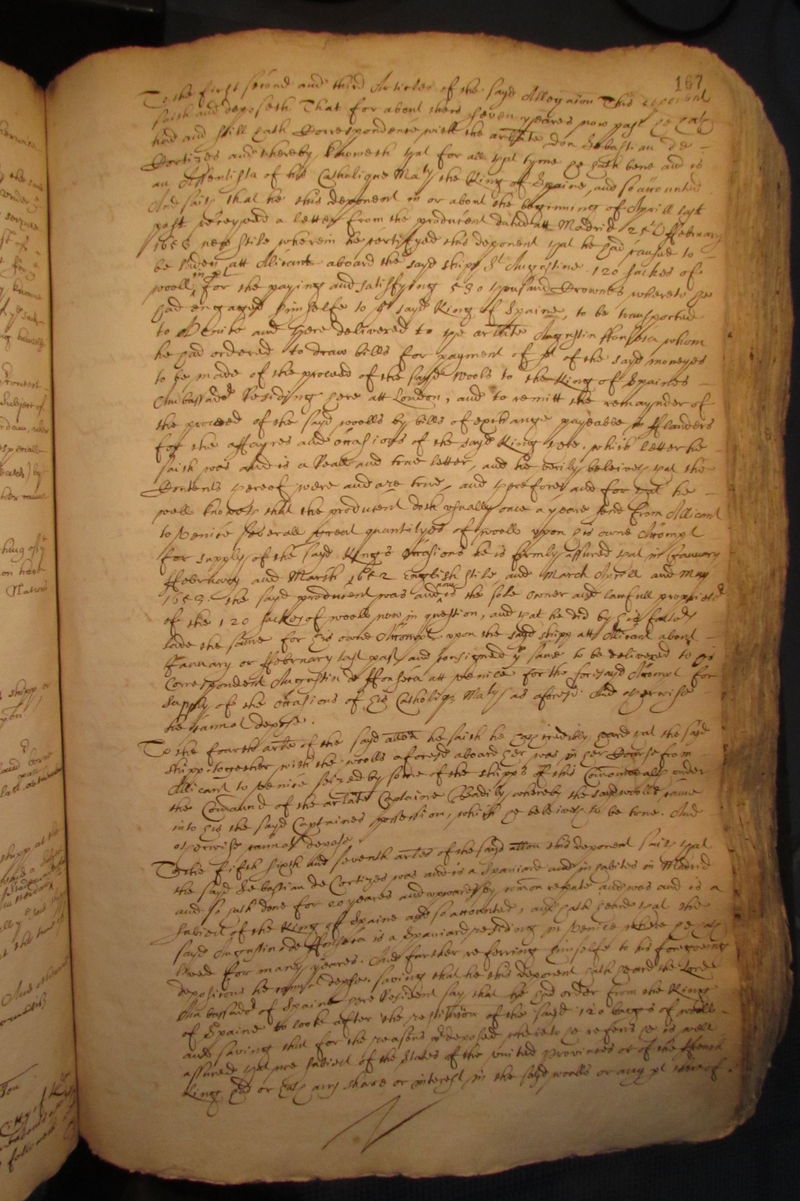 167
To the first second and third Articles of the sayd Allegation This deponent
saith and deposeth That for about theis seven yeares now past he hath
had and still hath Correspondence with the arlate don Sebastian de
Cortizes and thereby knoweth that for all that tyme he hath bene and is
an Assentista of his Catholique Maty the King of Spaine, and so accounted
And saith that he this deponent in or about the beginning of Aprill last
past received a letter from the producent dated att Madrid 25th ffebruary
1653 new stile wherein he certifyed this deponent that he had caused to
be laden att Alicante aboard the sayd shipp St Augustine 120 sackes of
wooll in pt for the paying and satisfying 530 thousand Crownes whereto he
had engaged himselfe to ye sayd King of Spaine, to be transported
to Venice and there delivered to the arlate Augustin ffonseca whom
he had ordered to draw bills for payment of pt of the sayd moneyes
to be made of the proceed of the sayd wools to the King of Spaines
Ambassador Residing here att London, and to remitt the remaynder of
the proceed of the sayd woolls by bills of exchange payeable in fflanders
for the affayres and occasions of the sayd King there. which letter he
saith was and is a Reall and true letter, and he verily beleives that the
Contents thereof were and are true, and therefore and for that he
well knoweth that the producent doth usually once a yeare send from Allicant
to Venice severall great quantityes of woolls upon his owne Accompt
for supply of the sayd Kings occasions he is firmly assured that in January
ffebruary and March 1652 English stile and March Aprill and May
1653. the sayd producent was and now is the sole owner and lawfull proprietor
of the 120 sackes of wools now in question, and that he did by his factors
lade the same for his owne Accompt upon the sayd shipp att Alicant about
January or ffebruary last past and consigned ye same to be delivered to his
Correspondent Augustin de ffonseca att Venice for the foresayd Accompt for
supply of the occasions of his Catholique Maty as aforesd. And otherwise
he cannot depose.
To the fourth arle of the sayd allon he saith he hath credibly heard that the sayd
shipp together with the woolls aforesd aboard her was in her Course from
Alicant to Venice seized by some of the shipps of this Commonwealth under
the Command of the arlate Captaine Badily whereby the sayd woolls came
into his the sayd Captaines possession, which he beleives to be true. And
otherwise cannot depose.
To the fifth sixth and seventh arles of the sayd allon this deponent saith that
the sayd Sebastian de Cortizes was and is a Spaniard and inhabites in Madrid
and so hath done for 20 yeares and upwards by comon repute and was and is a
subiect of the King of Spaine and so accounted, and hath heard that the
sayd Augustin de ffonseca is a Spaniard residing in Venice where he hath
lived for many yeares. And further referring himselfe to his foregoing
depositions he cannot depose. saving that he this deponent hath heard the Lord
Ambassador of Spaine here Resident say that he had order from the King
of Spaine to looke after the restitution of the sayd 120 baggs of wools
and saving that for the reasons predeposed wherto he referrs he is well
assured that noe subiect of the States of the united Provinces or of the ffrench
King had or hath any share or interest in the sayd woolls or any pt thereof.